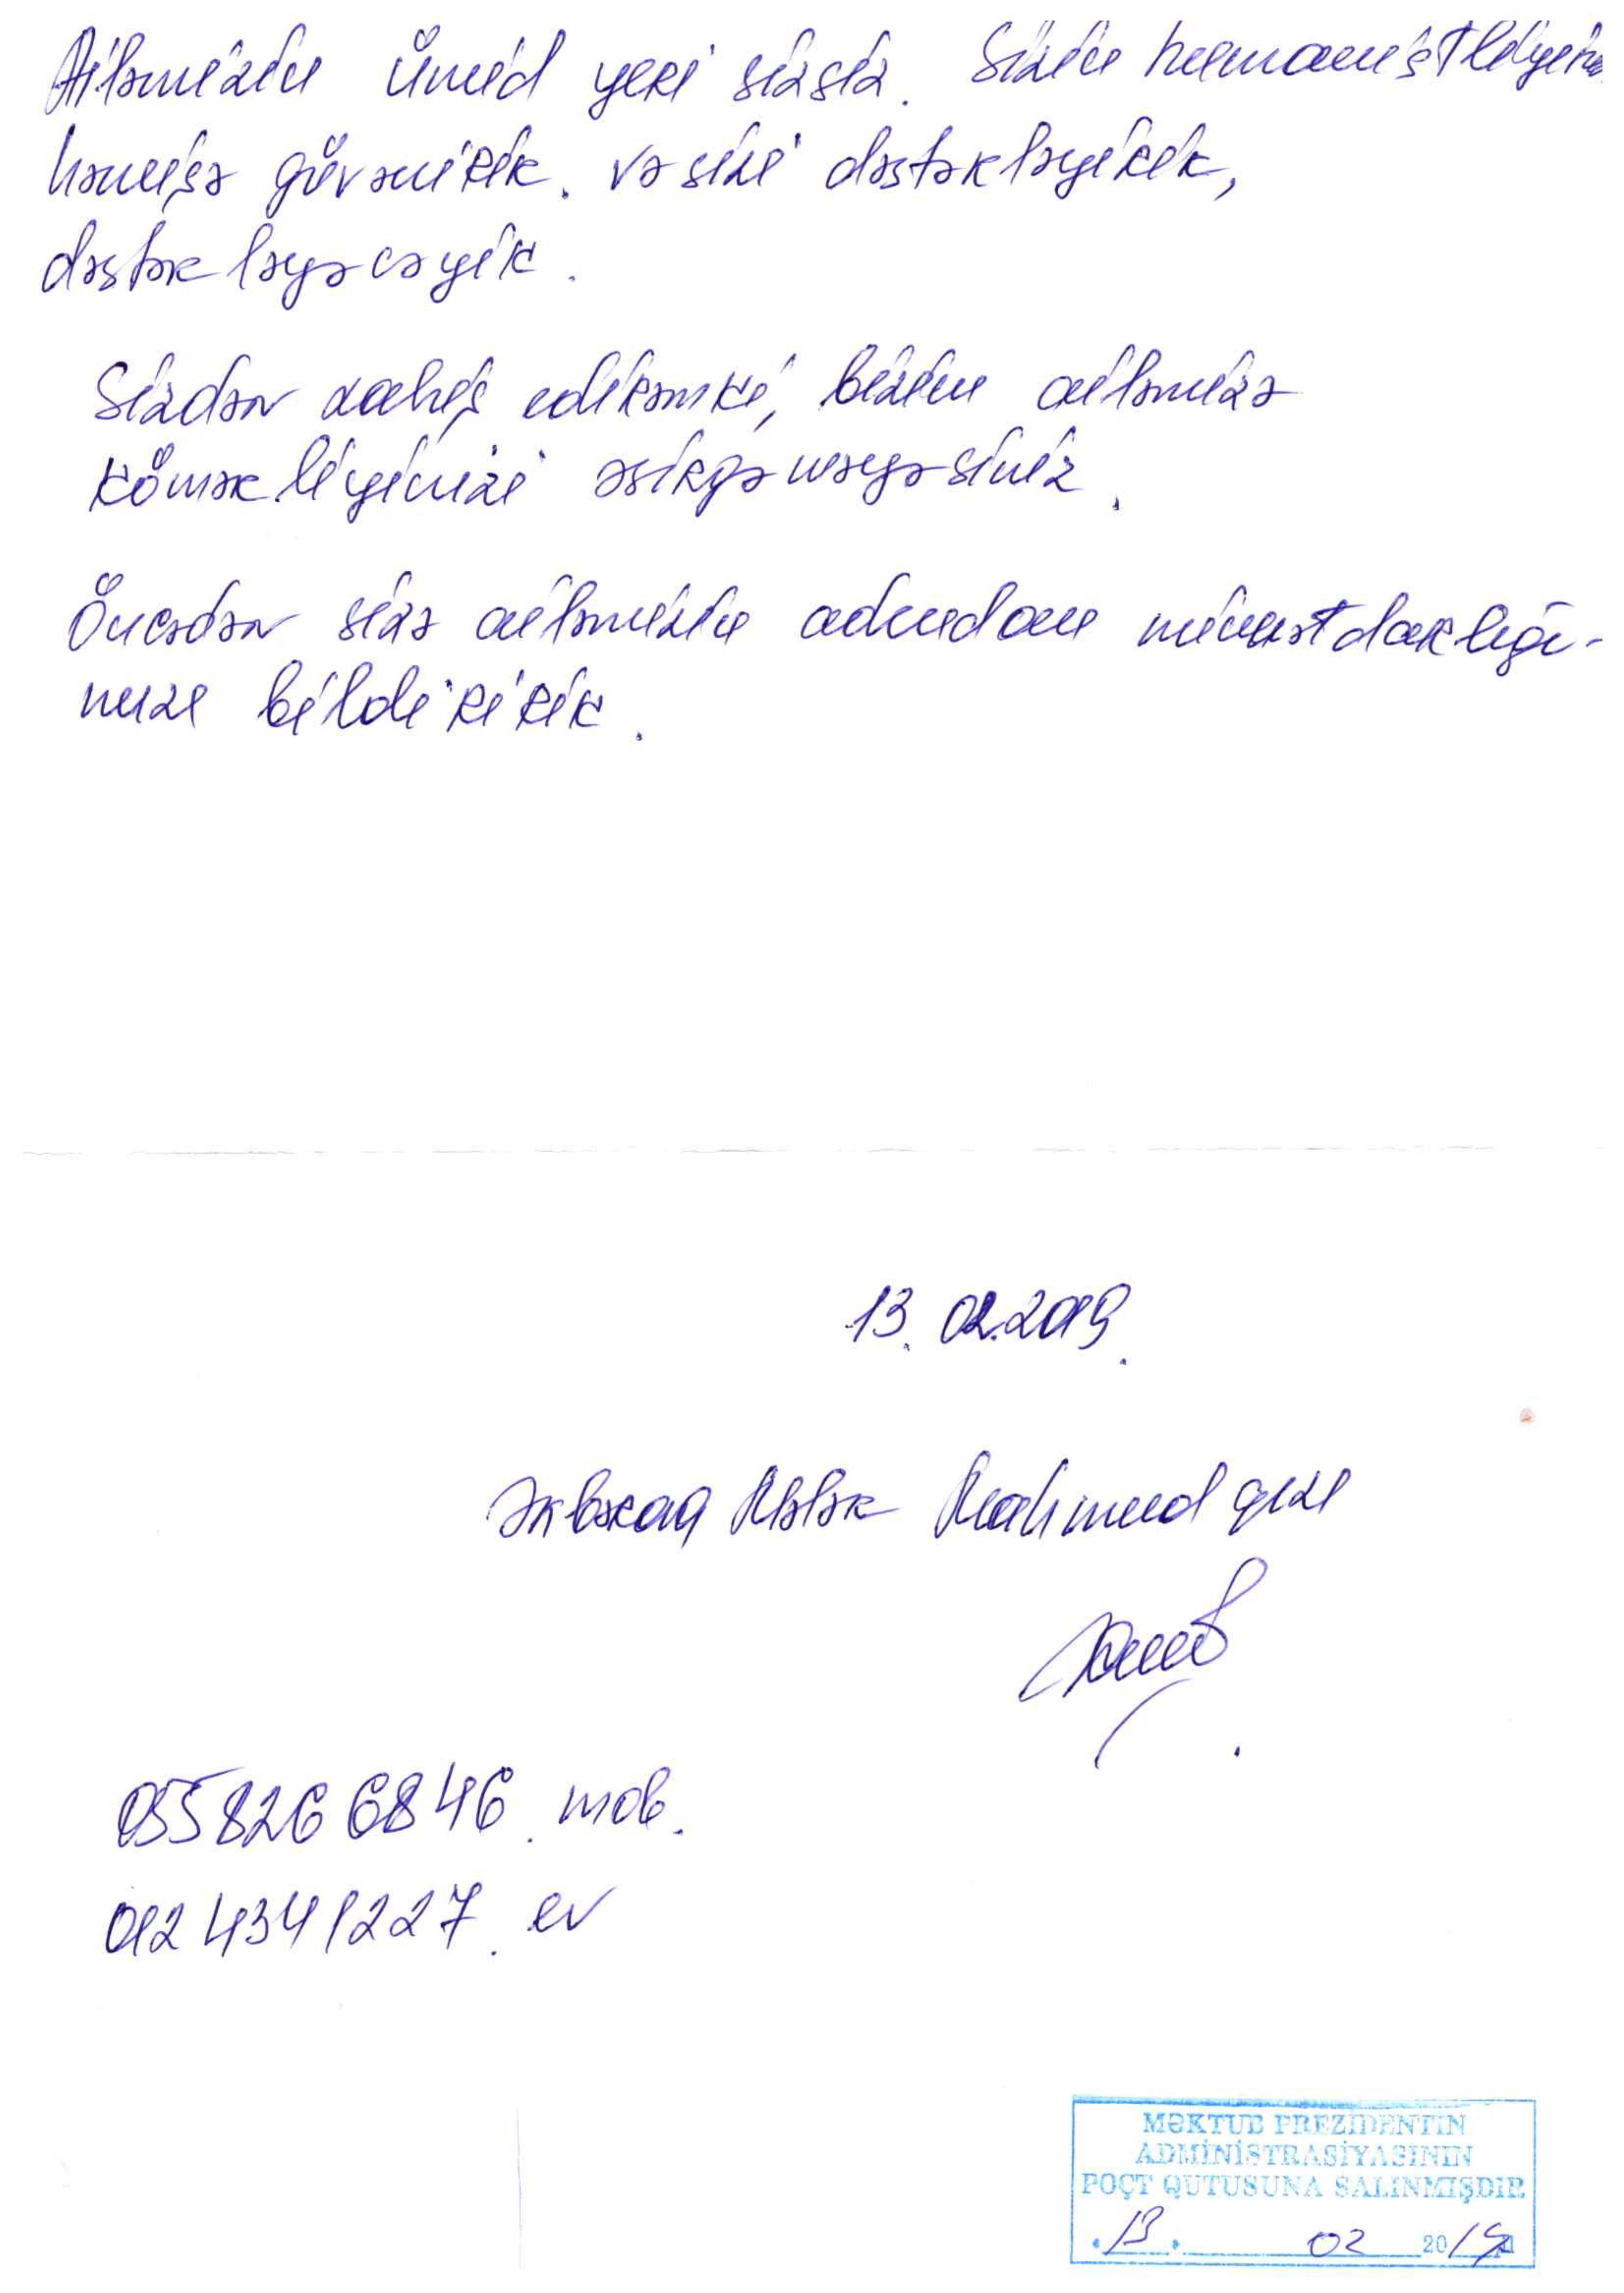 Ailəmizin ümid yeri sizsiz. Sizin humanistliyinizə
həmişə güvənirik. və sizi dəstəkləyirik,
dəstəkləyəcəyik.
Sizdən xahiş edirəmki, bizim ailəmizə
köməkliyinizi əsirgəməyəsiniz.
Öncədən sizə ailəmizin adından minnətdarlığı-
mızı bildiririk.
13.02.2019.
Əkbərov Mələk Mahmud qızı
0558266846. mob.
0124341227. ev
MƏKTUB PREZİDENTİN
ADMİNİSTRASİYASININ
POÇT QUTUSUNA SALINMIŞDIR
"13" 02 2019